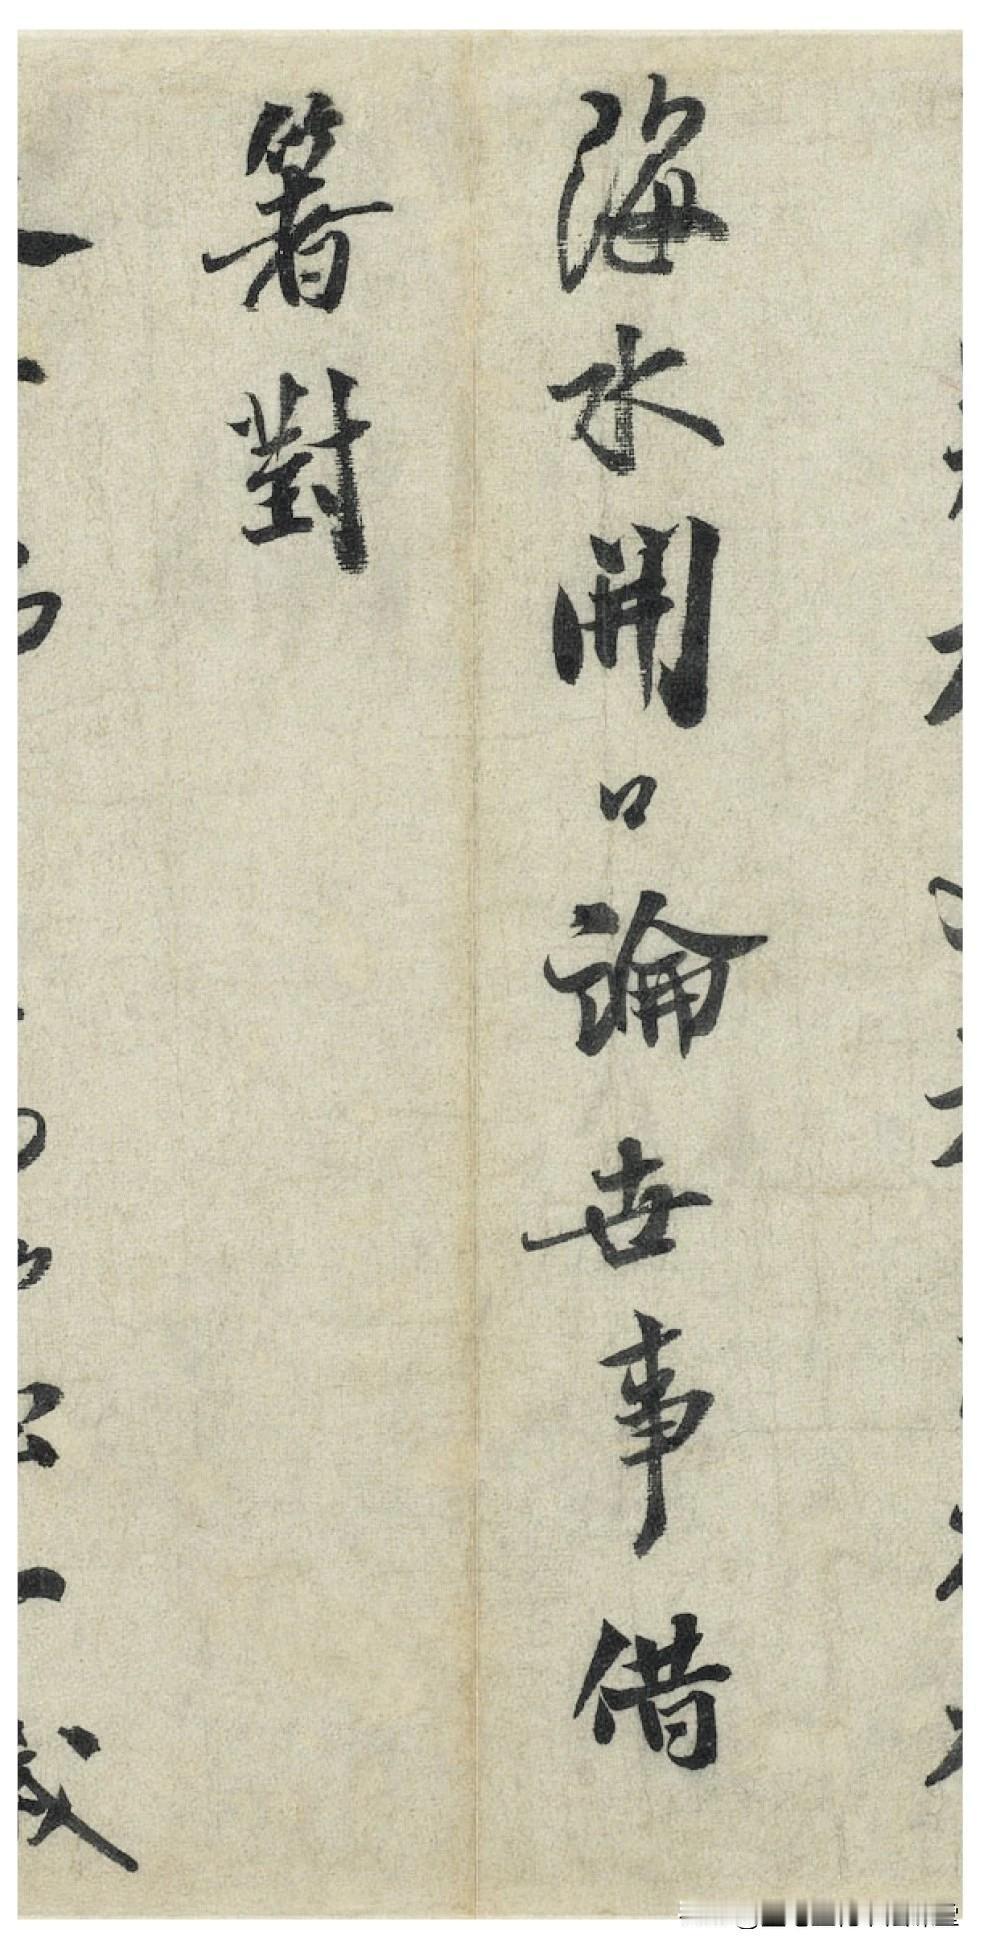 海水開口論世事借
箸對